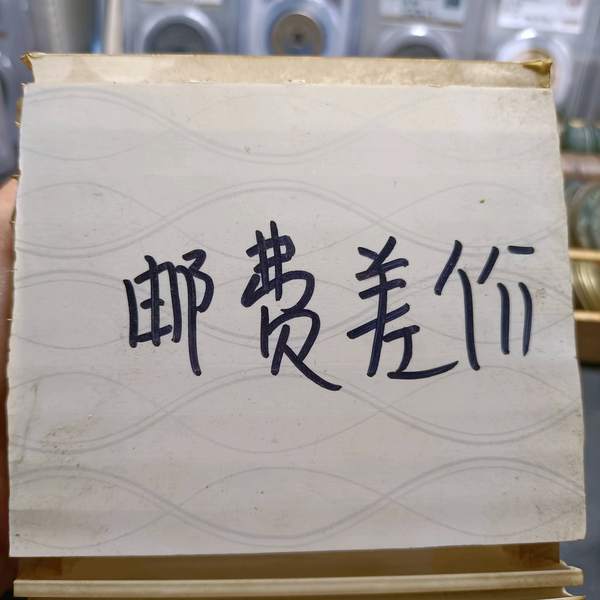 邮费差价